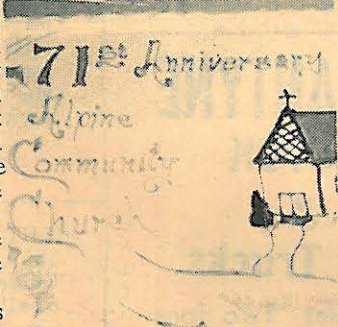 71st Anniversary
Alpine
Community
Church